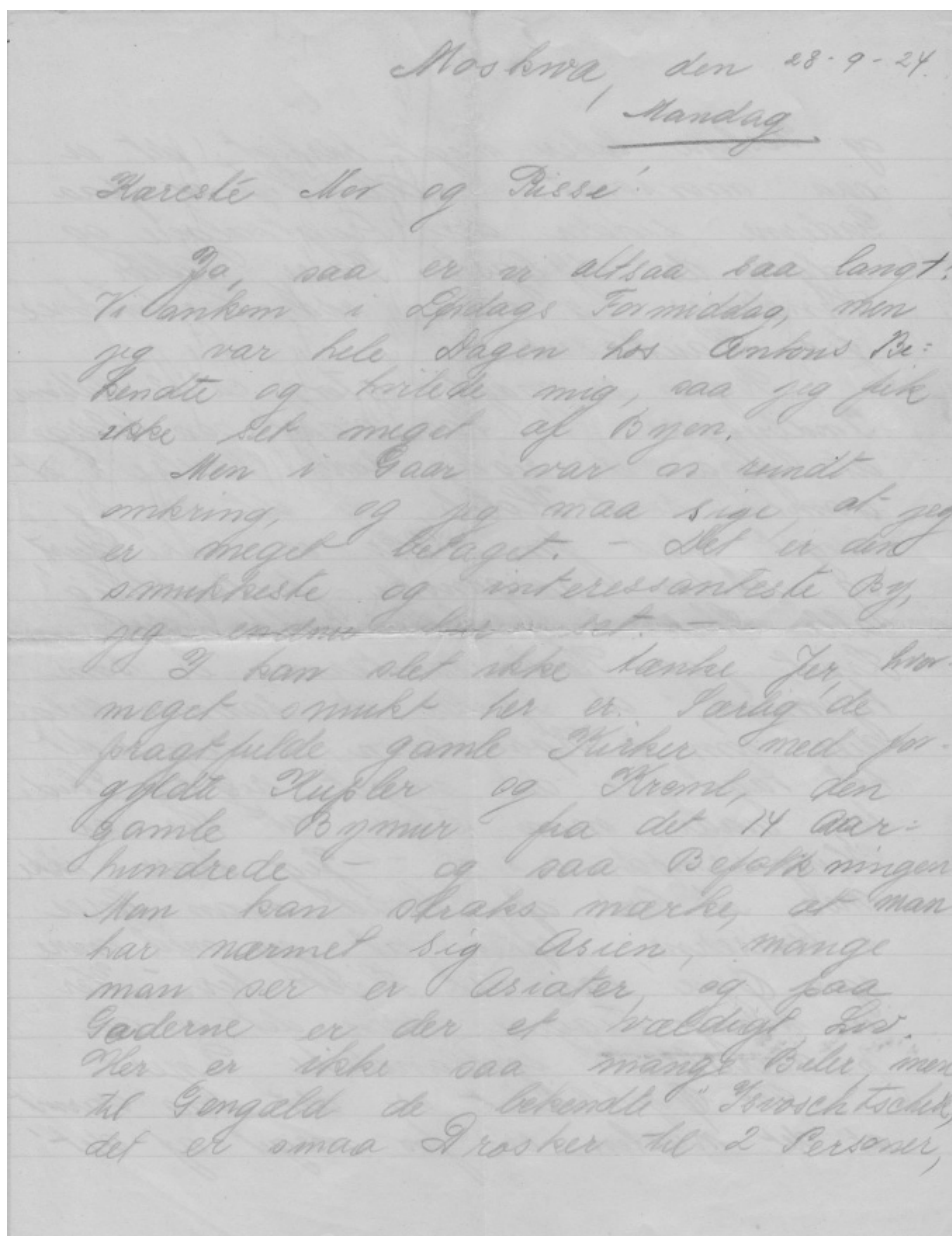 Moskwa, den 28-9-24.
Mandag
Kæreste Mor og Sisse!
Ja, saa er vi altsaa saa langt.
Vi ankom i Lørdags Formiddag, men
jeg var hele Dagen hos Antons Be=
kendte og hvilede mig, saa jeg fik
ikke set meget af Byen.
Men i Gaar var vi rundt
omkring, og jeg maa sige, at jeg
er meget betaget. - Det er den
smukkeste og interessanteste By,
jeg endnu har set. -
I kan slet ikke tænke Jer, hvor
meget smukt her er. Særlig de
pragtfulde gamle Kirker med for-
gyldte Kupler og Kreml, den
gamle Bymur fra det 14 Aar=
hundrede - og saa Befolkningen
Man kan straks mærke, at man
har nærmet sig Asien, mange
man ser er Asiater, og paa
Gaderne er der et vældigt Liv.
Her er ikke saa mange Biler, men
til Gengæld de bekendte "Isvoschtschik,
det er smaa Drosker til 2 Personer,